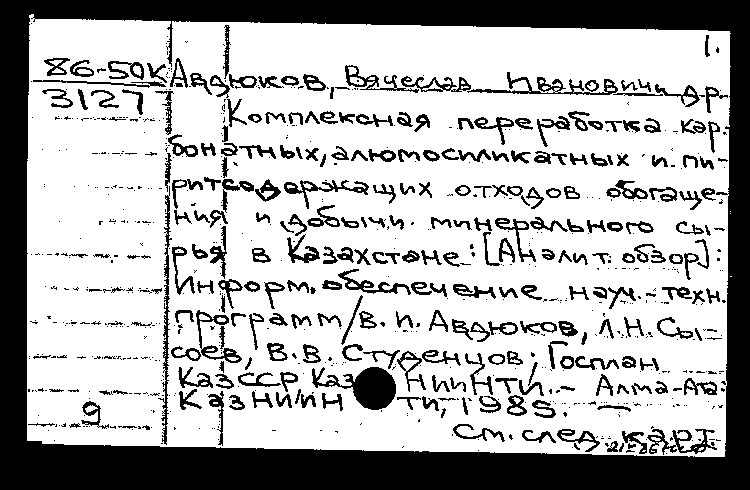 1.
86-50К Авдюков, Вячеслав Иванович и др.
3127 Комплексная переработка кар-
бонатных, алюмосиликатных и пи-
ритсодержащих отходов обогаще-
ния и добычи минерального сы-
рья в Казахстане: [Аналит. обзор]:
Информ. обеспечение науч.-техн.
программ / В. И. Авдюков, Л. Н. Сы-
соев, В. В. Студенцов; Госплан
КазССР Каз НИИНТИ. – Алма-Ата:
КазНИИН ТИ, 1985. –
9
См. след. карт.